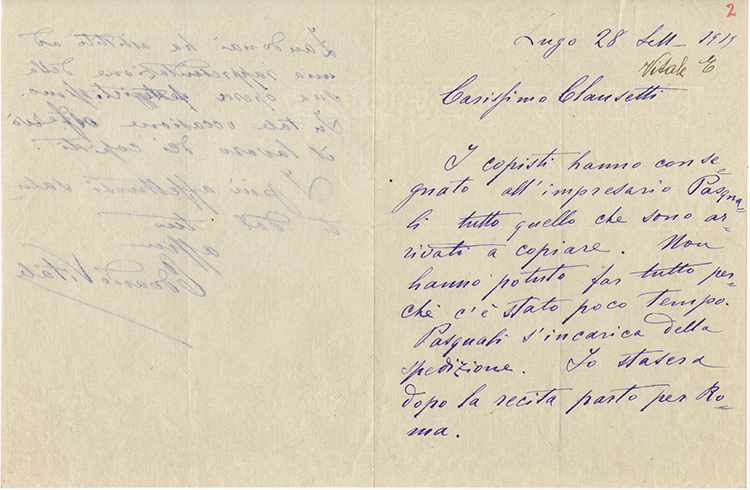 2
Lugo 28 Sett- 1919
Vitale E
Carissimo Clausetti
I copisti hanno conse-
gnato all'impresario Pasqua-
li tutto quello che sono ar-
rivati a copiare. Non
hanno potuto far tutto per-
chè c'è stato poco tempo.
Pasquali s'incarica della
spedizione. Io stasera
dopo la recita parto per Ro-
ma.
Zandonai ha assistito ad
una rappresentazione della
sua opera
In tale occasione osservò
il lavoro dei copisti
I più affettuosi salu
dal tuo
Edoardo Vitale